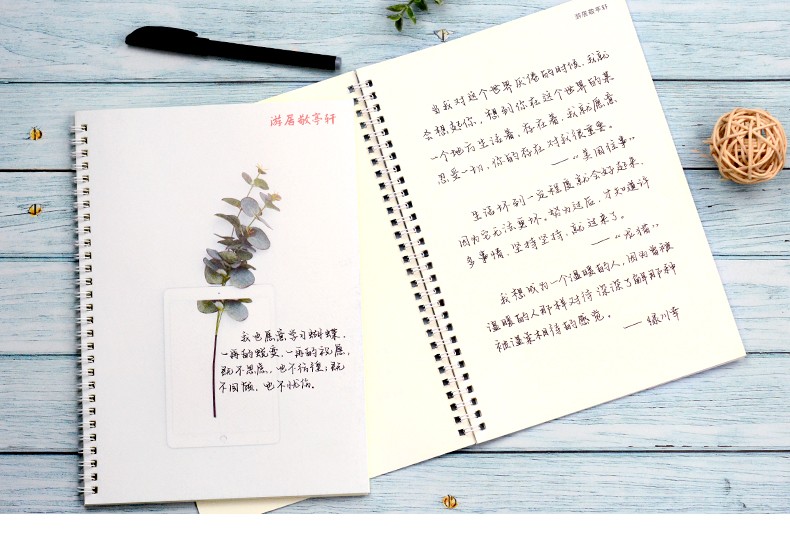 游居敬亭轩
我也愿意学习蝴蝶，
一再的蜕变，一再的祝愿，
既不思虑，也不彷徨；既
不回顾，也不忧伤。
游居敬亭轩
当我对这个世界厌倦的时候，我就
会想起你，想到你在这个世界的某
一个地方生活着，存在着，我就愿意
忍受一切，你的存在对我很重要。
——“美国往事”
生活坏到一定程度就会好起来，
因为它无法更坏。努力过后，才知道许
多事情，坚持坚持，就过来了。
——“龙猫”
我想成为一个温暖的人，因为曾被
温暖的人那样对待 深深了解那种
被温柔相待的感觉。
——绿川幸